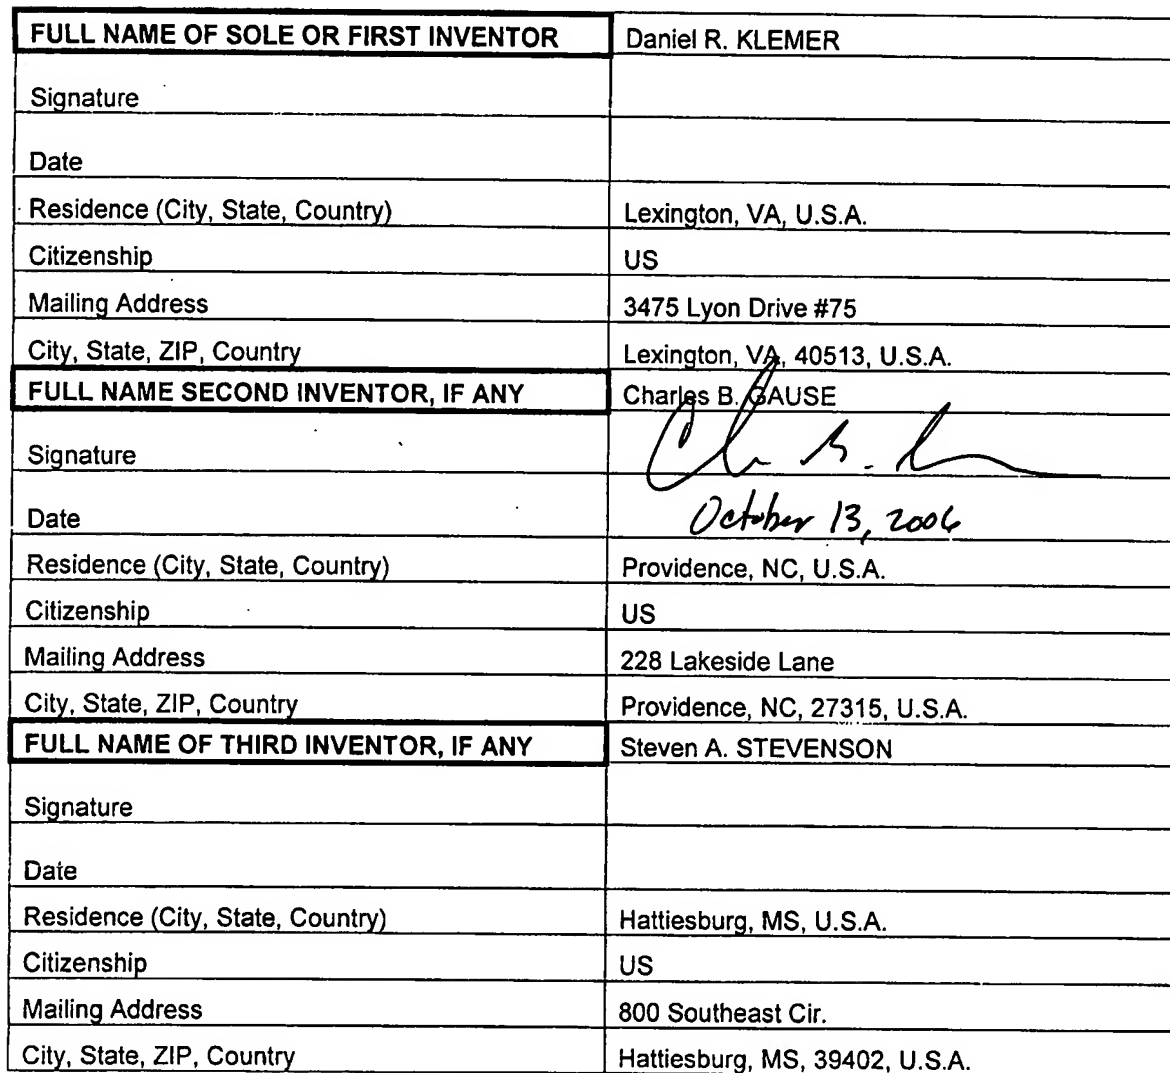 FULL NAME OF SOLE OR FIRST INVENTOR Daniel R. KLEMER
Signature
Date
Residence (City, State, Country) Lexington, VA, U.S.A.
Citizenship US
Mailing Address 3475 Lyon Drive #75
City, State, ZIP, Country Lexington, VA, 40513, U.S.A.
FULL NAME SECOND INVENTOR, IF ANY Charles B. GAUSE
Signature
Date October 13, 2006
Residence (City, State, Country) Providence, NC, U.S.A.
Citizenship US
Mailing Address 228 Lakeside Lane
City, State, ZIP, Country Providence, NC, 27315, U.S.A.
FULL NAME OF THIRD INVENTOR, IF ANY Steven A. STEVENSON
Signature
Date
Residence (City, State, Country) Hattiesburg, MS, U.S.A.
Citizenship US
Mailing Address 800 Southeast Cir.
City, State, ZIP, Country Hattiesburg, MS, 39402, U.S.A.